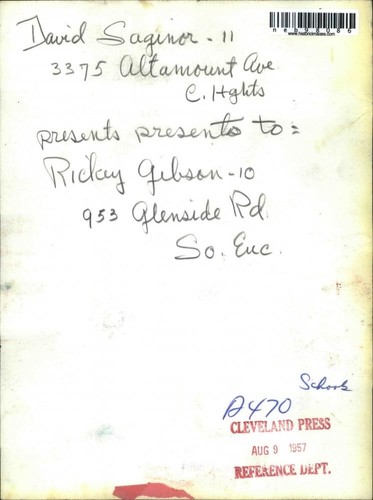 David Saginor - 11
3375 Altamount Ave
C. Hghts
presents presents to =
Rickay Gibson - 10
953 Glenside Rd.
So. Euc.
Schools
A470
CLEVELAND PRESS
AUG 9 1957
REFERENCE DEPT.